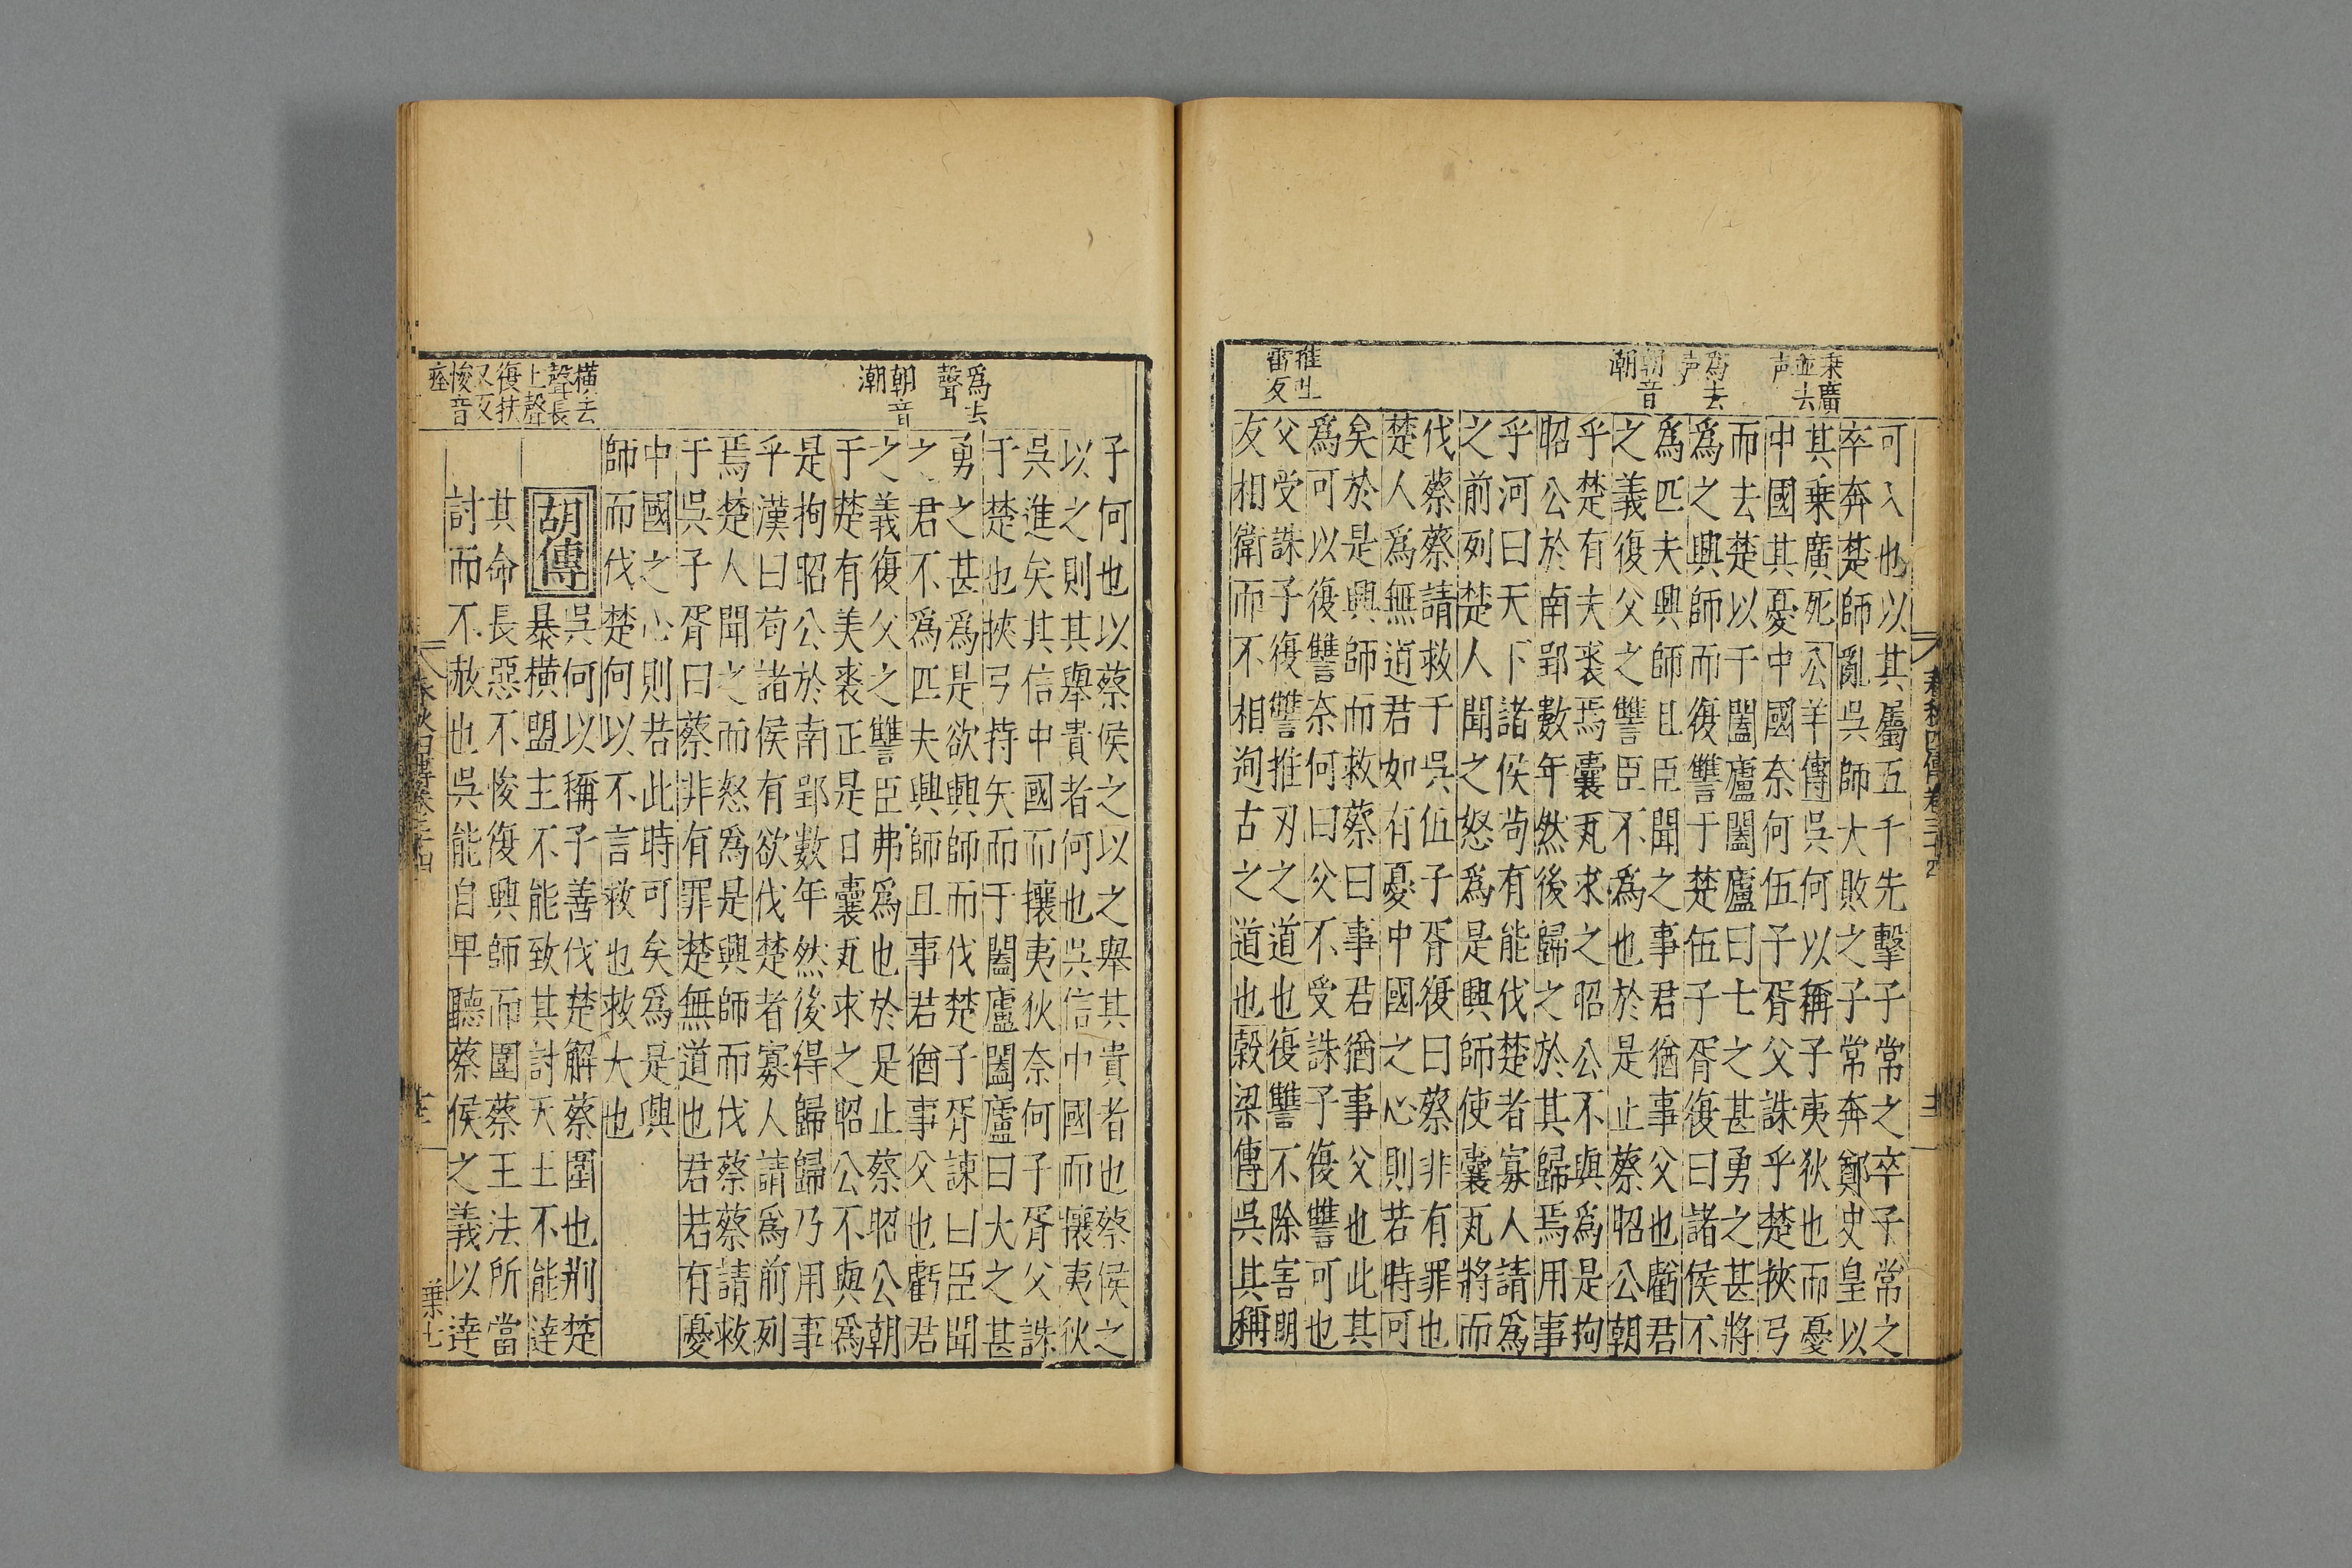 乗廣
並去
声
為去
声
朝音
潮
推吐
雷反
可入也以其屬五千先擊子常之卒子常之
卒奔楚師亂吳師大敗之子常奔鄭史皇以
其乗廣死公羊傳吳何以稱子夷狄也而憂
中國其憂中國奈何伍子胥父誅乎楚挾弓
而去楚以干闔廬闔廬曰士之甚勇之甚將
爲之興師而復讐于楚伍子胥復曰諸侯不
爲匹夫興師且臣聞之事君猶事父也虧君
之義復父之讐臣不爲也於是止蔡昭公朝
乎楚有美裘焉囊瓦求之昭公不與爲是拘
昭公於南郢數年然後歸之於其歸焉用事
乎河曰天下諸侯尚有能伐楚者寡人請爲
之前列楚人聞之怒爲是興師使囊瓦將而
伐蔡蔡請救于吳伍子胥復曰蔡非有罪也
楚人爲無道君如有憂中國之心則若時可
矣於是興師而救蔡曰事君猶事父也此其
爲可以復讐奈何曰父不受誅子復讐可也
父受誅子復讐推刃之道也復讐不除害朋
友相衛而不相迿古之道也穀梁傳吳其稱
春秋四傳卷三十四
爲去
聲
朝音
潮
橫去
聲長
上聲
復扶
又反
悛音
痊
子何也以蔡侯之以之舉其貴者也蔡侯之
以之則其舉貴者何也吳信中國而攘夷狄
吳進矣其信中國而攘夷狄奈何子胥父誅
于楚也挾弓持矢而于闔廬闔廬曰大之甚
勇之甚爲是欲興師而伐楚子胥諫曰臣聞
之君不爲匹夫興師且事君猶事父也虧君
之義復父之讐臣弗爲也於是止蔡昭公朝
于楚有美裘正是日囊瓦求之昭公不與爲
是拘昭公於南郢數年然後得歸歸乃用事
乎漢曰苟諸侯有欲伐楚者寡人請爲前列
焉楚人聞之而怒爲是興師而伐蔡蔡請救
于吳子胥曰蔡非有罪楚無道也君若有憂
中國之心則若此時可矣爲是興
師而伐楚何以不言救也救大也
胡傳
吳何以稱子善伐楚解蔡圍也荆楚
暴橫盟主不能致其討天王不能達
其命長惡不悛復興師而圍蔡王法所當
討而不赦也吳能自卑聽蔡侯之義以達
春秋四傳卷三十四